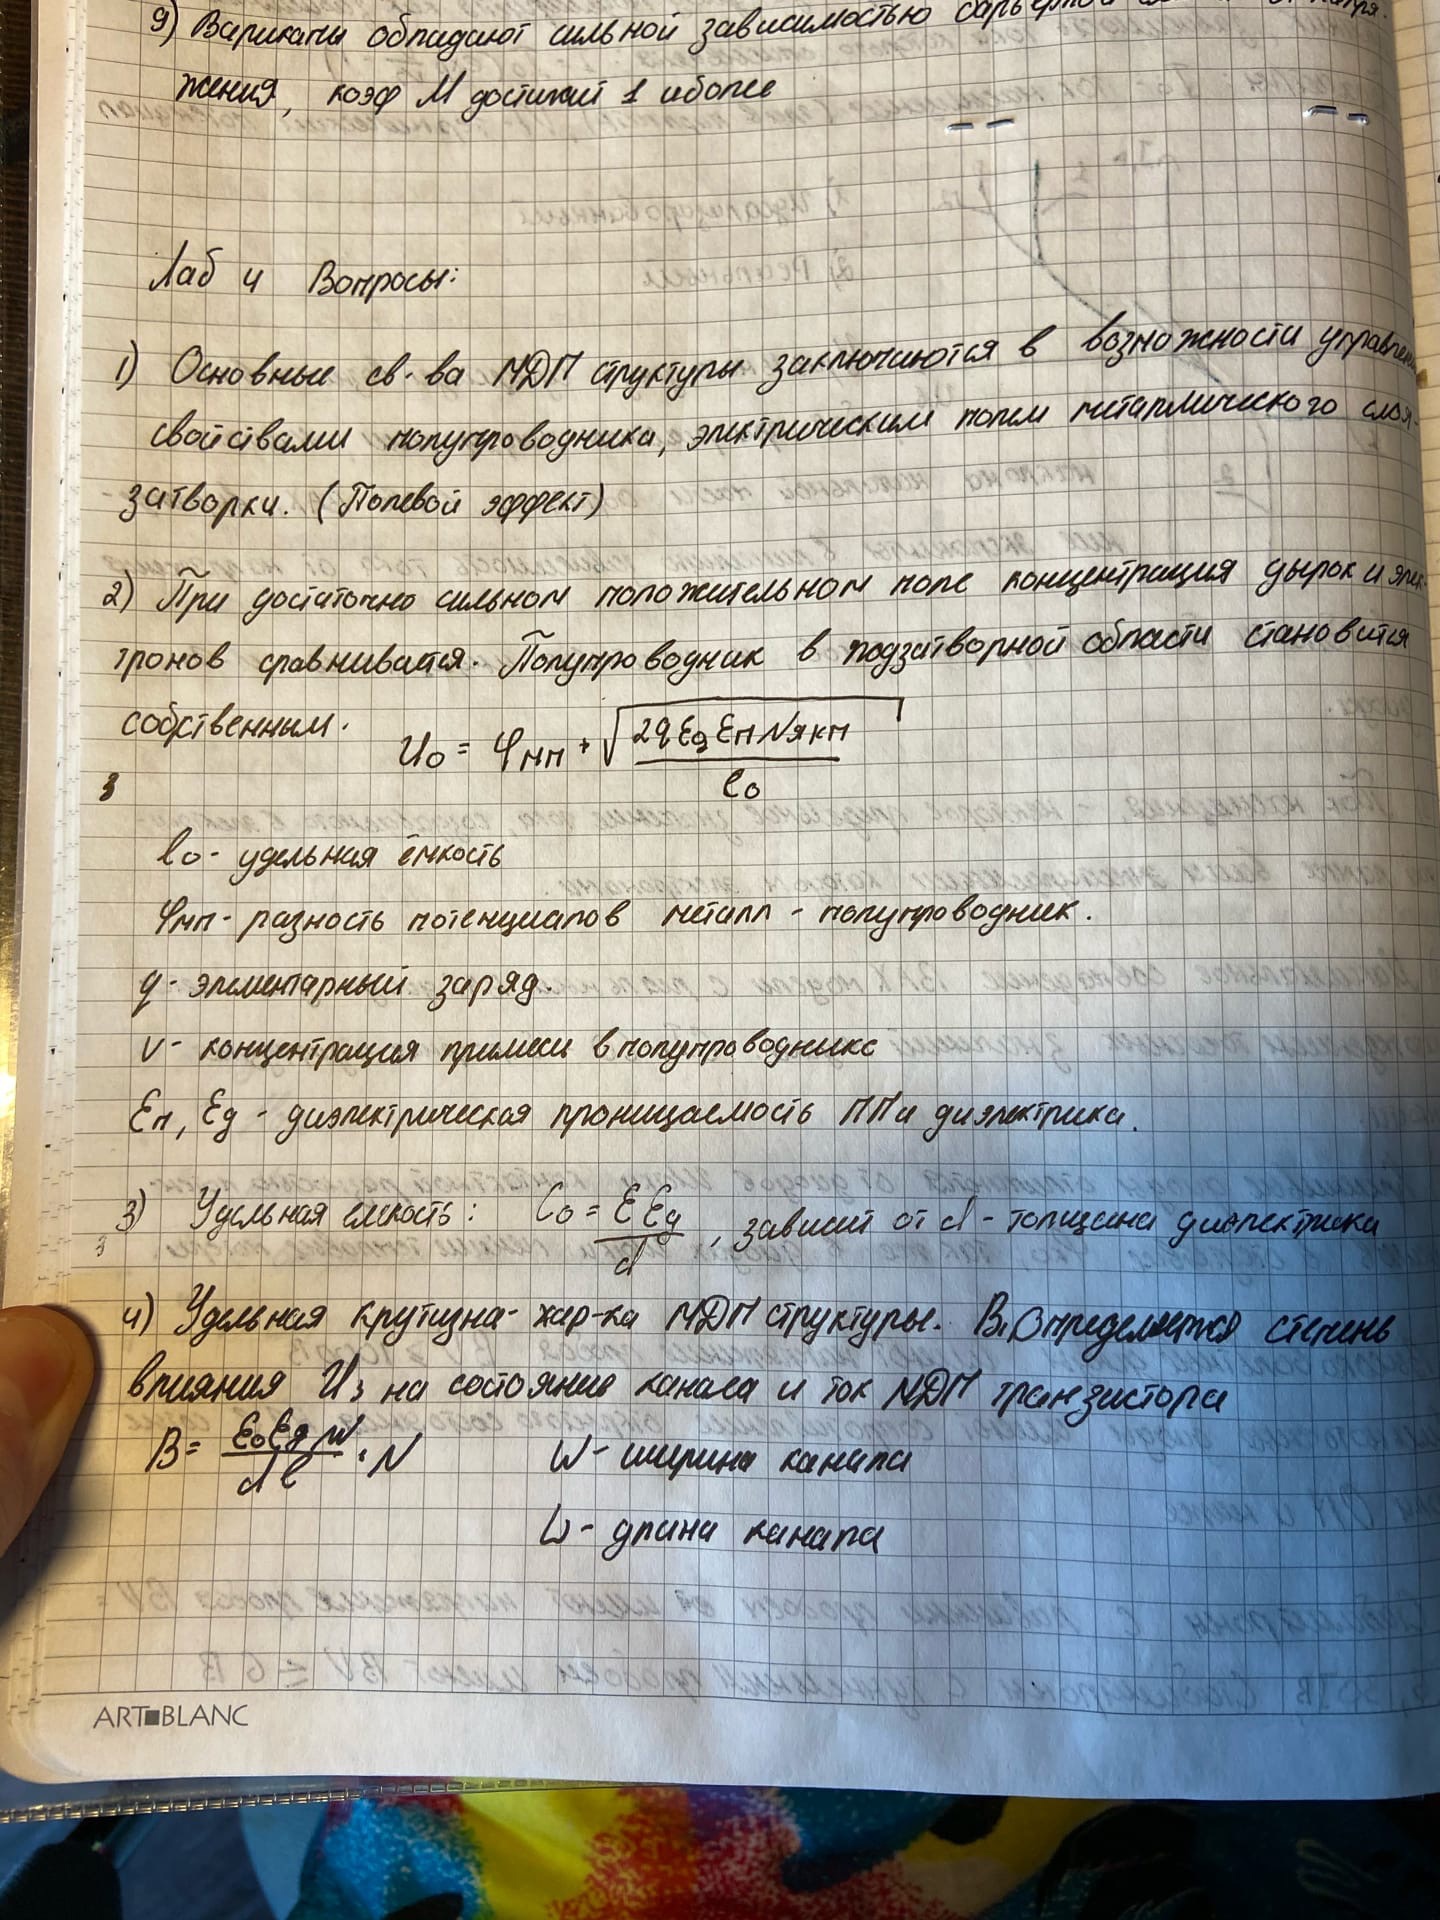 9) Варикапы обладают сильной зависимостью барьерной
жения, коэф М достигает 1 и более
Лаб 4 Вопросы:
1) Основные св-ва МДП структуры заключаются в возможности управлени
свойствами полупроводника, электрическим полем металлического слоя-
затворки. (Полевой эффект)
2) При достаточно сильном положительном поле концентрация дырок и элек-
тронов сравнивается. Полупроводник в подзатворной области становится
собственным.
U₀ = φмп + √(2qε₀εпN)/C₀
C₀ - удельная ёмкость
φмп - разность потенциалов металл - полупроводник.
q - элементарный заряд.
N - концентрация примеси в полупроводнике
εп, εд - диэлектрическая проницаемость ПП и диэлектрика.
3) Удельная емкость: C₀ = εεд/d, зависит от d - толщина диэлектрика
4) Удельная крутизна - хар-ка МДП структуры. В. Определяется степень
влияния Uз на состояние канала и ток МДП транзистора
B = ε₀εдW/dl · N W - ширина канала
L - длина канала
ART■BLANC